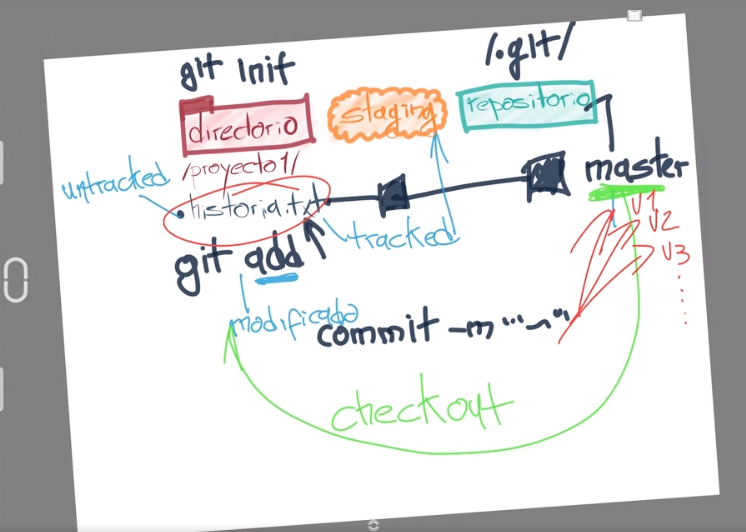 git init
/.git/
directorio
staging
repositorio
/proyecto1/
master
untracked
historia.txt
tracked
V1
V2
V3
git add
modificado
commit -m "~"
checkout